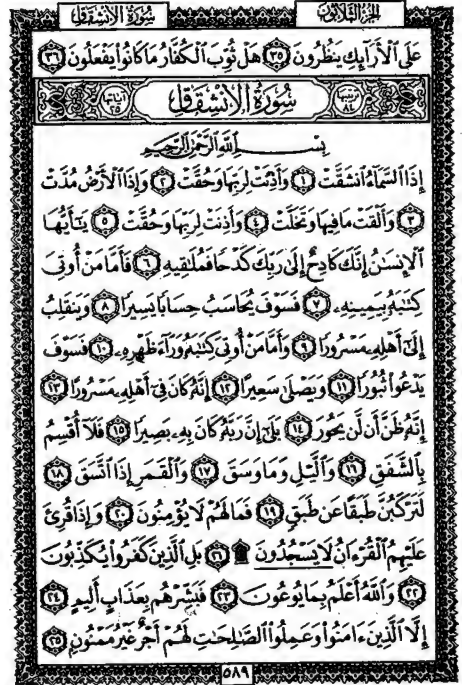 سُورَةُ الانْشِقَاقِ الجُزْءُ الثَّلَاثُونَ
عَلَى الْأَرَائِكِ يَنظُرُونَ ٣٥ هَلْ ثُوِّبَ الْكُفَّارُ مَا كَانُوا يَفْعَلُونَ ٣٦
سُورَةُ الانْشِقَاقِ
بِسْمِ اللَّهِ الرَّحْمَٰنِ الرَّحِيمِ
إِذَا السَّمَاءُ انشَقَّتْ ١ وَأَذِنَتْ لِرَبِّهَا وَحُقَّتْ ٢ وَإِذَا الْأَرْضُ مُدَّتْ
٣ وَأَلْقَتْ مَا فِيهَا وَتَخَلَّتْ ٤ وَأَذِنَتْ لِرَبِّهَا وَحُقَّتْ ٥ يَٰأَيُّهَا
الْإِنسَٰنُ إِنَّكَ كَادِحٌ إِلَىٰ رَبِّكَ كَدْحًا فَمُلَٰقِيهِ ٦ فَأَمَّا مَنْ أُوتِيَ
كِتَٰبَهُۥ بِيَمِينِهِۦ ٧ فَسَوْفَ يُحَاسَبُ حِسَابًا يَسِيرًا ٨ وَيَنقَلِبُ
إِلَىٰ أَهْلِهِۦ مَسْرُورًا ٩ وَأَمَّا مَنْ أُوتِيَ كِتَٰبَهُۥ وَرَاءَ ظَهْرِهِۦ ١٠ فَسَوْفَ
يَدْعُوا ثُبُورًا ١١ وَيَصْلَىٰ سَعِيرًا ١٢ إِنَّهُۥ كَانَ فِي أَهْلِهِۦ مَسْرُورًا ١٣
إِنَّهُۥ ظَنَّ أَن لَّن يَحُورَ ١٤ بَلَىٰ إِنَّ رَبَّهُۥ كَانَ بِهِۦ بَصِيرًا ١٥ فَلَا أُقْسِمُ
بِالشَّفَقِ ١٦ وَالَّيْلِ وَمَا وَسَقَ ١٧ وَالْقَمَرِ إِذَا اتَّسَقَ ١٨
لَتَرْكَبُنَّ طَبَقًا عَن طَبَقٍ ١٩ فَمَا لَهُمْ لَا يُؤْمِنُونَ ٢٠ وَإِذَا قُرِئَ
عَلَيْهِمُ الْقُرْءَانُ لَا يَسْجُدُونَ ۩ ٢١ بَلِ الَّذِينَ كَفَرُوا يُكَذِّبُونَ
٢٢ وَاللَّهُ أَعْلَمُ بِمَا يُوعُونَ ٢٣ فَبَشِّرْهُم بِعَذَابٍ أَلِيمٍ ٢٤
إِلَّا الَّذِينَ ءَامَنُوا وَعَمِلُوا الصَّٰلِحَٰتِ لَهُمْ أَجْرٌ غَيْرُ مَمْنُونٍ ٢٥
٥٨٩